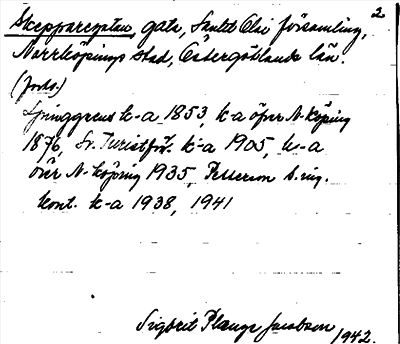 2
Skepparegatan, gata, Sankt Olai församling,
Norrköpings stad, Östergötlands län.
(forts.)
Ljunggrens k-a 1853, k-a över N-köping
1876, Sv. Turistför. k-a 1905, k-a
över N-köping 1935, Petterson S. ing.
kont. k-a 1938, 1941
Sigbrit Plange Jacobson
1942.